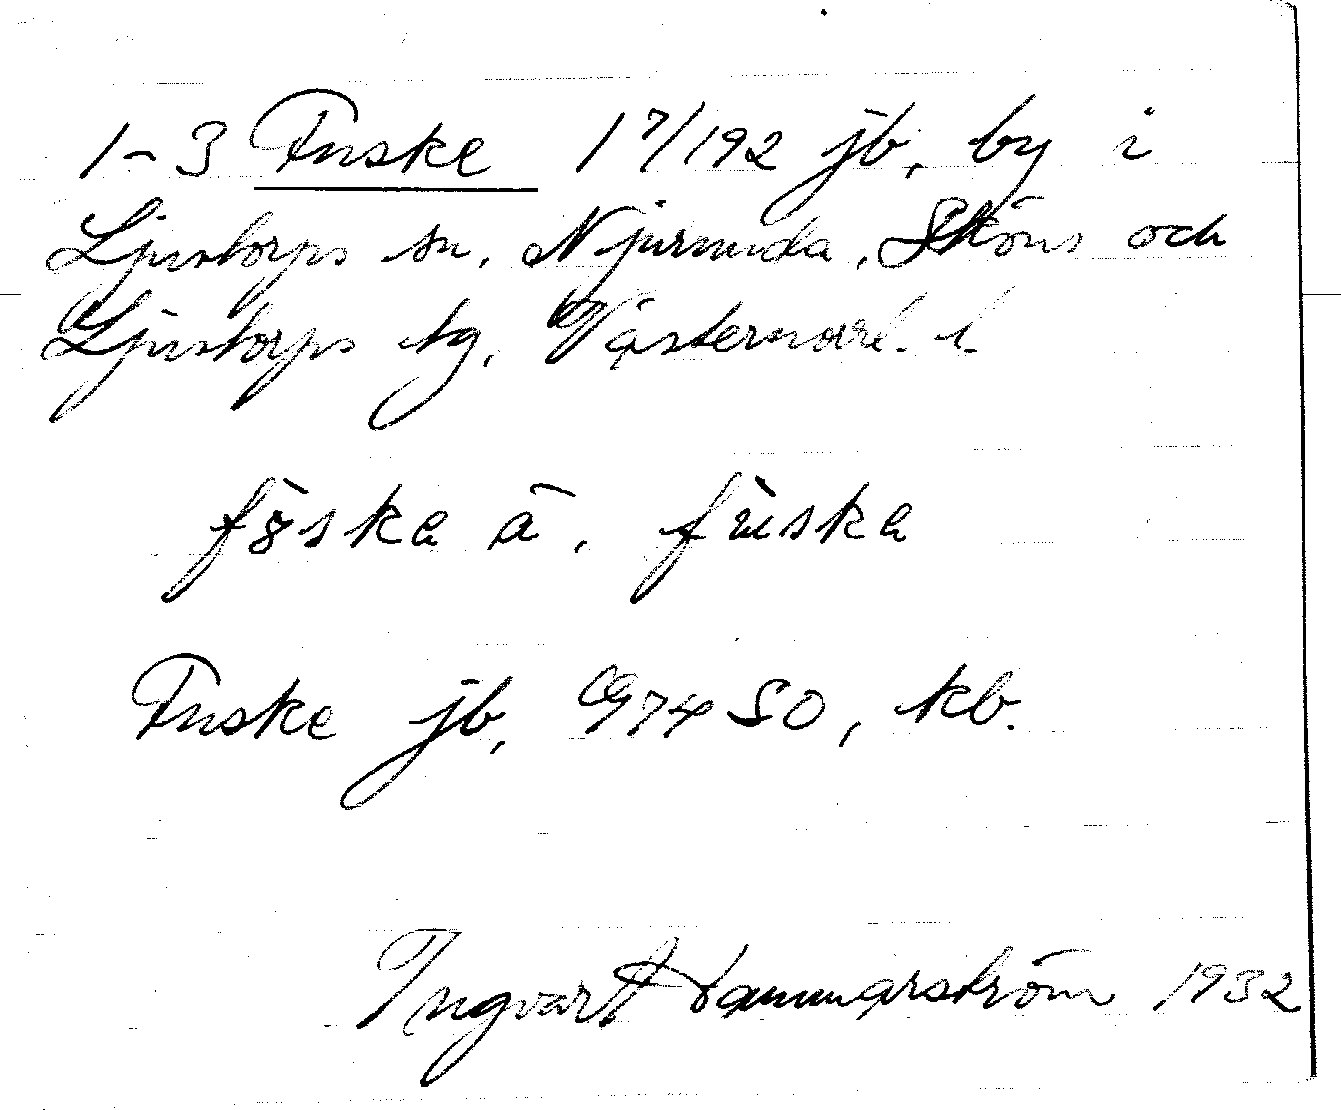 1-3 Fuske 17/192 jb, by i
Ljustorps sn, Njurunda, Sköns och
Ljustorps tg, Västernorrl. l.
føska ä. fuska
Fuske jb, G 74 SO, kb.
Ingvar Hammarström 1932